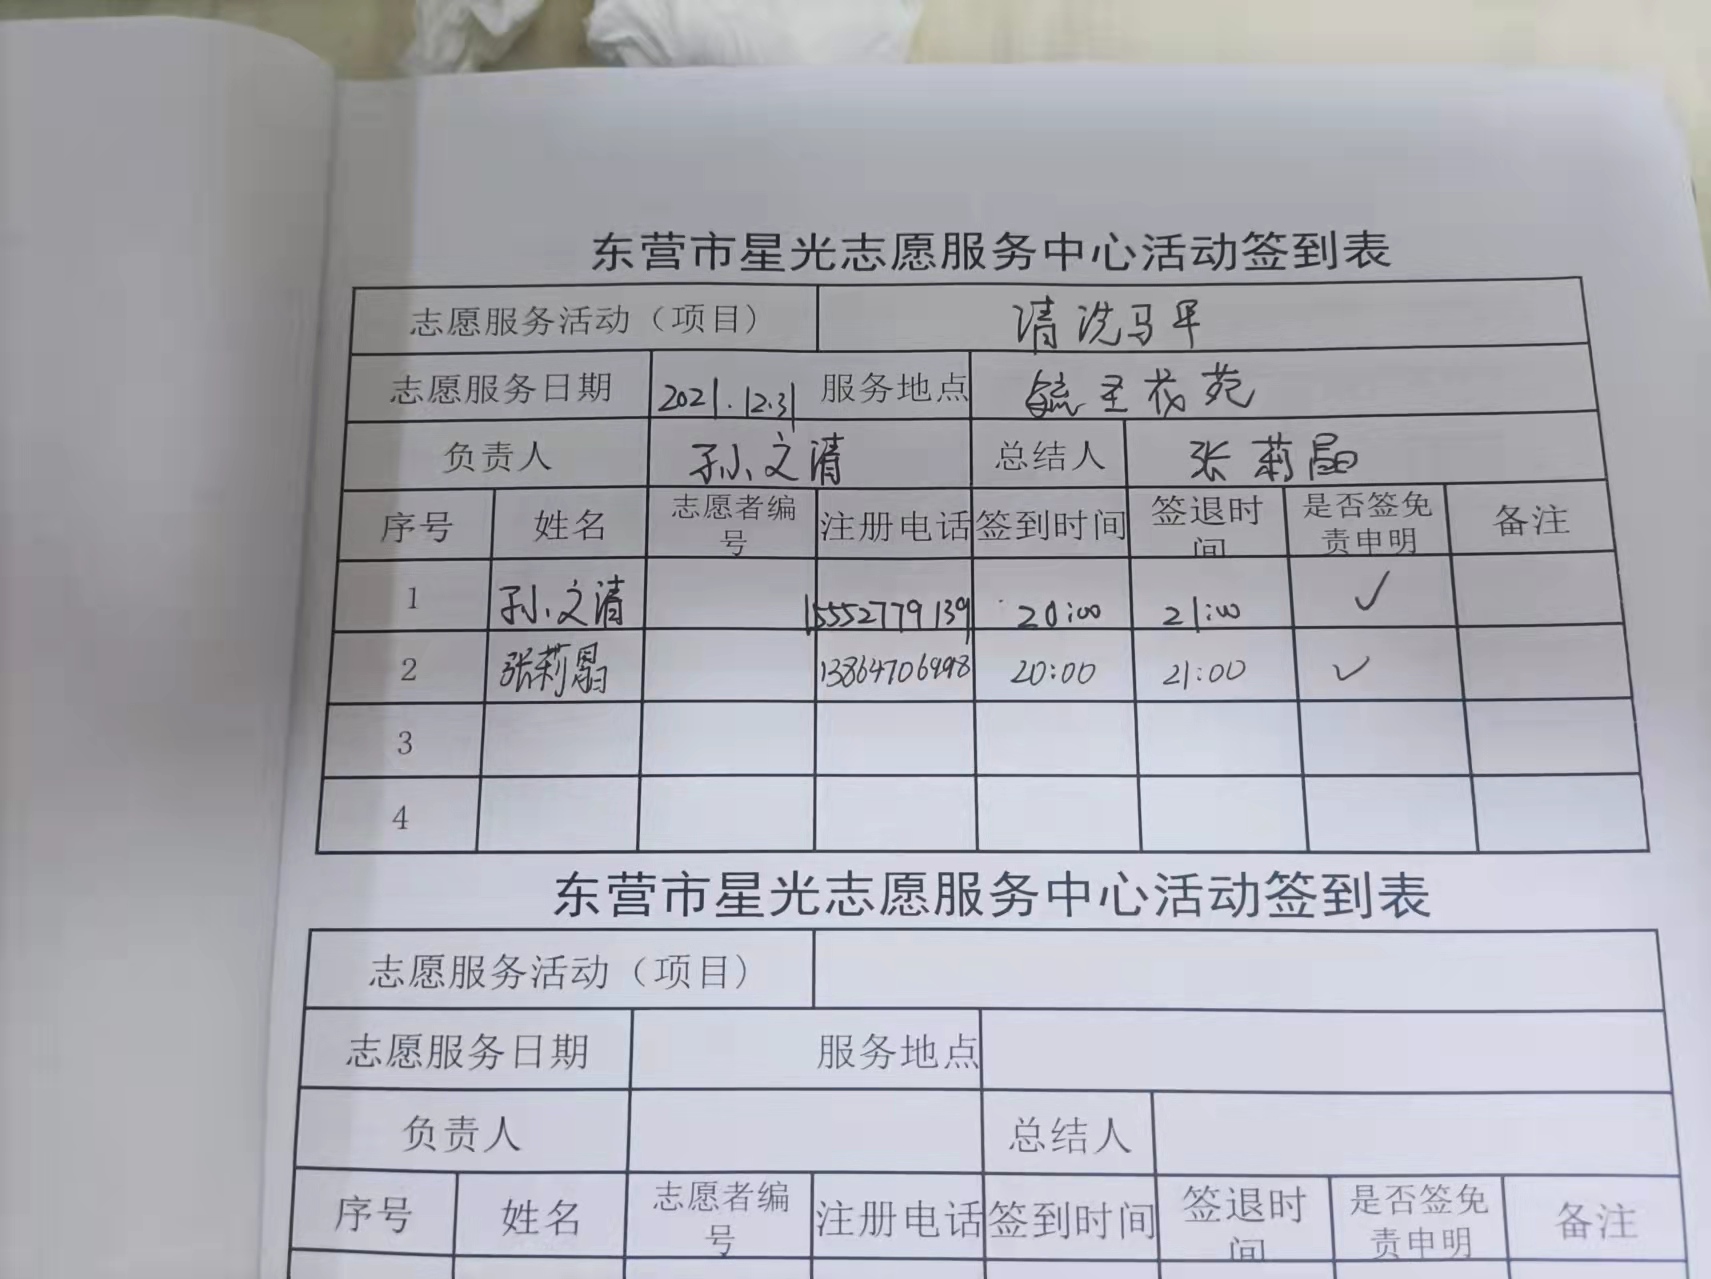 东营市星光志愿服务中心活动签到表
志愿服务活动（项目） 清洗马甲
志愿服务日期 2021.12.31 服务地点 毓圣茂苑
负责人 孙文清 总结人 张莉晶
序号 姓名 志愿者编号 注册电话 签到时间 签退时间 是否签免责申明 备注
1 孙文清 15552779139 20:00 21:00 ✓
2 张莉晶 13864706998 20:00 21:00 ✓
3
4
东营市星光志愿服务中心活动签到表
志愿服务活动（项目）
志愿服务日期 服务地点
负责人 总结人
序号 姓名 志愿者编号 注册电话 签到时间 签退时间 是否签免责申明 备注